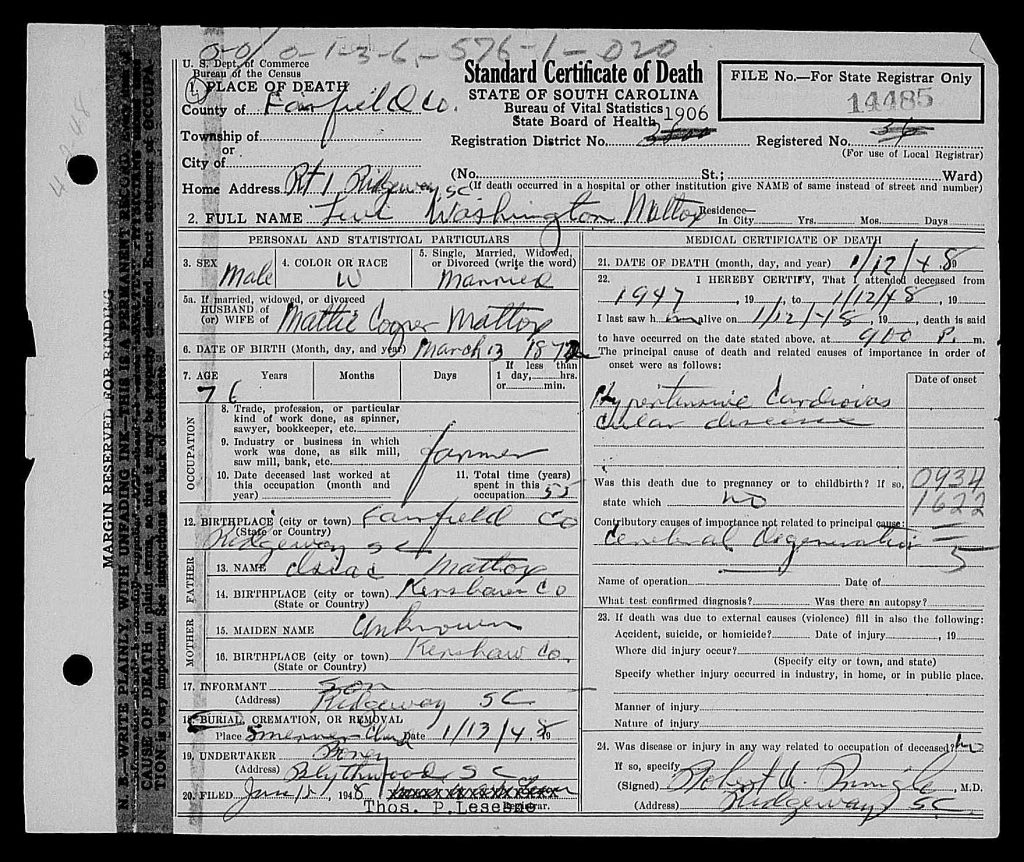 0-0 0-1-3-6-576-1-020
U. S. Dept. of Commerce
Bureau of the Census
1. PLACE OF DEATH
County of Fairfield Co.
Township of
or
City of
Home Address Rt 1 Ridgeway SC
Standard Certificate of Death
STATE OF SOUTH CAROLINA
Bureau of Vital Statistics
State Board of Health 1906
Registration District No.
FILE No.—For State Registrar Only
14485
Registered No. 36
(For use of Local Registrar)
(No. St.; Ward)
(If death occurred in a hospital or other institution give NAME of same instead of street and number)
2. FULL NAME Levi Washington Mattox
Residence—
In City Yrs. Mos. Days
PERSONAL AND STATISTICAL PARTICULARS
3. SEX Male
4. COLOR OR RACE W
5. Single, Married, Widowed, or Divorced (write the word)
Married
5a. If married, widowed, or divorced
HUSBAND of
(or) WIFE of Mattie Cooper Mattox
6. DATE OF BIRTH (Month, day, and year) March 13 1872
7. AGE Years Months Days If less than
1 day, hrs.
or min.
76
OCCUPATION
8. Trade, profession, or particular
kind of work done, as spinner,
sawyer, bookkeeper, etc.
9. Industry or business in which
work was done, as silk mill,
saw mill, bank, etc. farmer
10. Date deceased last worked at
this occupation (month and
year)
11. Total time (years)
spent in this
occupation 55
12. BIRTHPLACE (city or town) Fairfield Co
(State or County)
Ridgeway SC
FATHER
13. NAME Isiac Mattox
14. BIRTHPLACE (city or town) Kershaw Co
(State or Country)
MOTHER
15. MAIDEN NAME Unknown
16. BIRTHPLACE (city or town) Kershaw Co.
(State or Country)
17. INFORMANT Son
(Address) Ridgeway SC
18. BURIAL, CREMATION, OR REMOVAL
Place Date 1/13/48 19
19. UNDERTAKER Boney
(Address) Blythwood SC
20. FILED Jan 15, 1948
Thos. P. Lesesne Registrar.
MEDICAL CERTIFICATE OF DEATH
21. DATE OF DEATH (month, day, and year) 1/12/48 19
22. I HEREBY CERTIFY, That I attended deceased from
1947, 19 , to 1/12/48, 19
I last saw him alive on 1/12/48, 19 , death is said
to have occurred on the date stated above, at 900 P. m.
The principal cause of death and related causes of importance in order of
onset were as follows:
Date of onset
Hypertensive Cardiovas
cular disease
Was this death due to pregnancy or to childbirth? If so,
state which no
0934
1622
Contributory causes of importance not related to principal cause:
Cerebral degeneration
5
Name of operation Date of
What test confirmed diagnosis? Was there an autopsy?
23. If death was due to external causes (violence) fill in also the following:
Accident, suicide, or homicide? Date of injury , 19
Where did injury occur?
(Specify city or town, and state)
Specify whether injury occurred in industry, in home, or in public place.
Manner of injury
Nature of injury
24. Was disease or injury in any way related to occupation of deceased? no
If so, specify
(Signed) Robert W. , M.D.
(Address) Ridgeway SC
MARGIN RESERVED FOR BINDING
N. B.—WRITE PLAINLY, WITH UNFADING INK—THIS IS A PERMANENT RECORD.
CAUSE OF DEATH in plain terms, so that it may be properly classified. Exact statement of OCCUPA
TION is very important. See instructions on back of certificate.